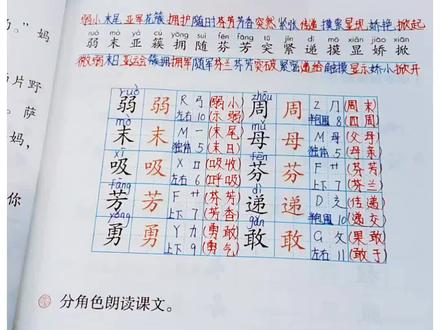 。”妈
片野
萨
妈，
你
弱小 末尾 亚军 花簇 拥护 随时 芬芳 芳香 突然 紧张 传递 摸索 显现 娇艳 掀起
ruò mò yà cù yōng suí fēn fāng tū jǐn dì mō xiǎn jiāo xiān
弱 末 亚 簇 拥 随 芬 芳 突 紧 递 摸 显 娇 掀
微弱 末日 亚运会 簇拥 拥军 随军 芬兰 芬芳 突破 紧密 递给 触摸 显示 娇小 掀开
ruò zhōu
弱 弱 R 弓 (弱小) 周 周 Z 冂 (周末)
左右 10 (东弱) 半包围 8 (四周)
mò mǔ
末 末 M 一 (末尾) 母 母 M 母 (父母)
独体 5 (末日) 独体 5 (母亲)
xī
吸 吸 X 口 (吸收) 芬 芬 F 艹 (芬芳)
左右 6 (呼吸) 上下 7 (芬兰)
fāng dì
芳 芳 F 艹 (芬芳) 递 递 D 辶 (传递)
上下 7 (芳香) 半包围 10 (递交)
yǒng gǎn
勇 勇 Y 力 (勇敢) 敢 敢 G 攵 (果敢)
上下 9 (勇气) 左右 11 (敢于)
分角色朗读课文。